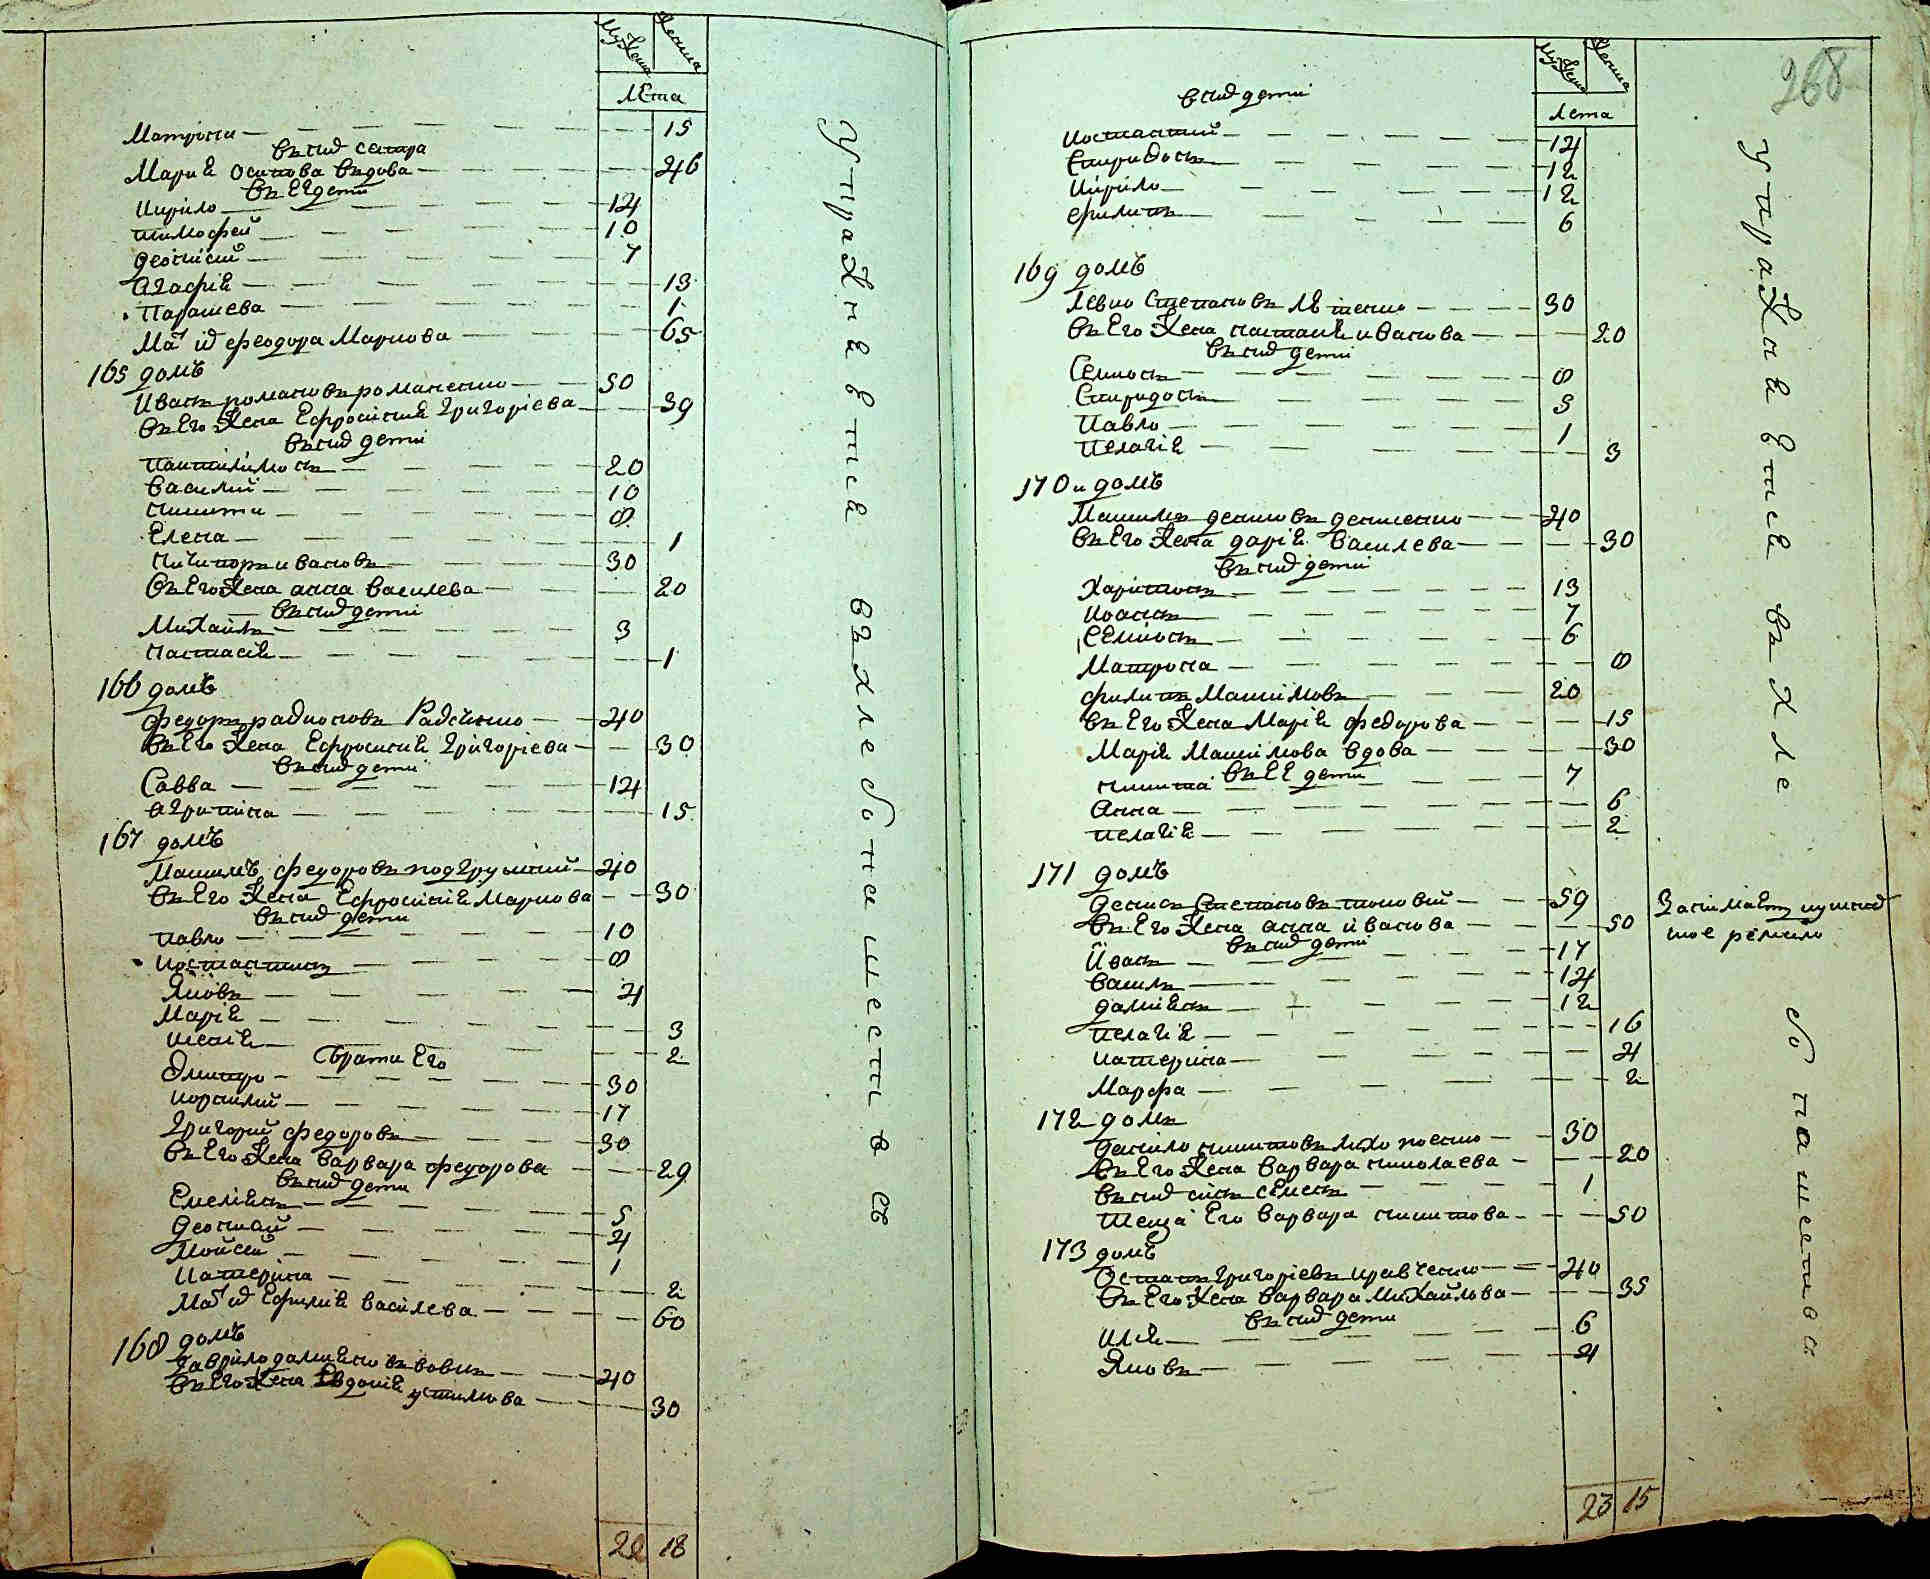 Мужеска Женска
Лѣта
Матрона 15
въ них сестра
Мария Осипова вдова 46
въ Ее дети
Кирило 14
тимофей 10
Деонисий 7
Агафия 13
Парасева 1
федора Маркова 65
165 домъ
Иванъ романовъ романенко 50
въ Его Жена Ефросиния Григориева 39
въ них дети
Пантилимонъ 20
Василий 10
никита 8
Елена 1
Ничипоръ ивановъ 30
въ Его Жена анна Василева 20
въ них дети
Михаилъ 3
настасия 1
166 домъ
федоръ радионовъ 40
въ Его Жена Ефросиния Григориева 30
въ них дети
Савва 14
агрипина 15
167 домъ
Максимъ федоровъ 40
въ Его Жена Ефросиния Маркова 30
въ них дети
павло 10
Костантинъ 8
Яковъ 4
Мария 3
Ксения 2
братя Его
Дмитро 30
корнилий 17
Григорий федоровъ 30
въ Его Жена Варвара федорова 29
въ них дети
Емелиянъ 5
4
Мойсей 1
Катерина 2
Василева 60
168 домъ
Гаврило 40
въ Его Жена Евдокия устимова 30
22 18
Упражняется въ хлебопашестве
268
Мужеска Женска
Лета
в них дети
Костантий 14
Спиридонъ 12
Кирило 12
филипъ 6
169 домъ
Левко Степановъ 30
въ Его Жена наталия иванова 20
въ них дети
Семионъ 8
Спиридонъ 5
Павло 1
Пелагия 3
170и домъ
Максимъ денисовъ денисенко 40
въ Его Жена дария Василева 30
въ них дети
Харитонъ 13
Иоанъ 7
Семионъ 6
Матрона 8
филипъ Максимовъ 20
въ Его Жена Мария федорова 15
Мария Максимова вдова 30
въ ЕЕ дети
никита 7
Анна 6
пелагия 2
171 домъ
Денисъ Степановъ 59
въ Его Жена анна иванова 50
въ них дети
Иванъ 17
Василь 14
дамиянъ 12
пелагия 16
катерина 4
Марфа 2
172 домъ
Данило никитовъ 30
въ Его Жена Варвара николаева 20
в них синъ семенъ 1
теща Его Варвара никитова 50
173 домъ
Остапъ григориевъ кравченко 40
въ Его Жена Варвара Михайлова 35
въ них дети
Илия 6
Яковъ 4
23 15
Упражняется въ хлебопашества